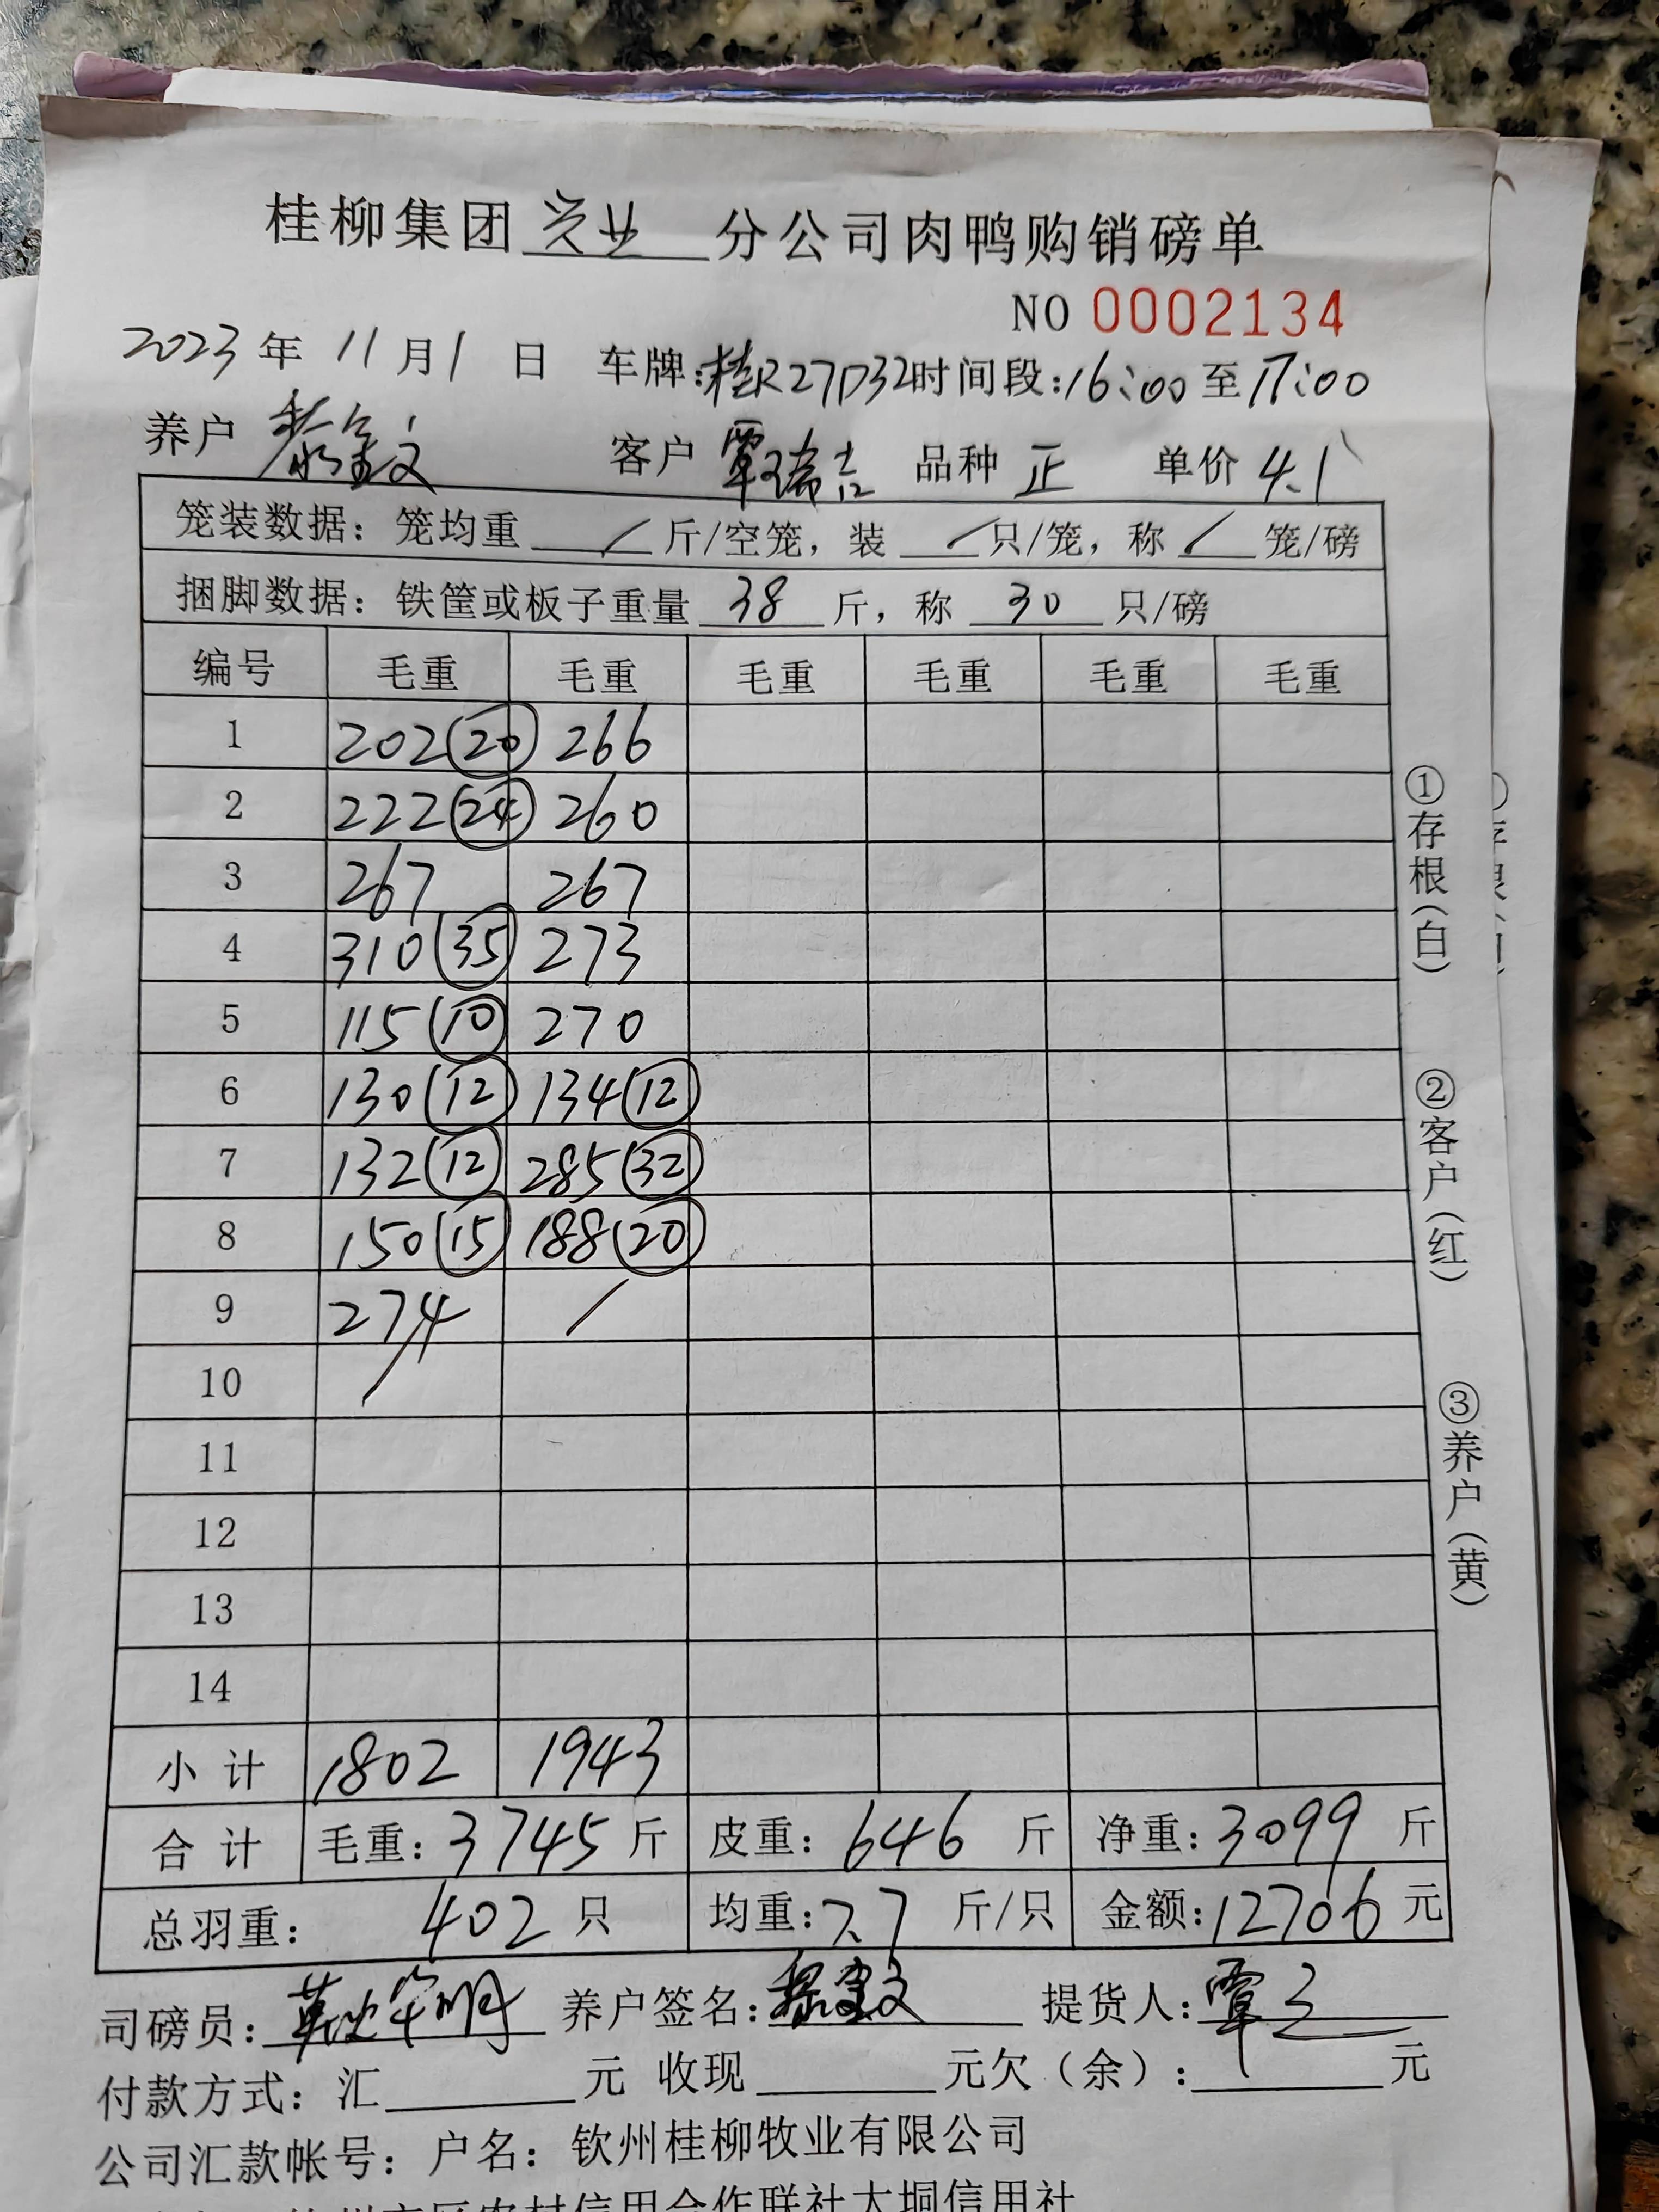 桂柳集团 分公司肉鸭购销磅单
NO 0002134
2023 年 11 月 1 日 车牌:桂R27D32 时间段:16:00 至 17:00
养户 客户 覃瑞吉 品种 正 单价 4.1
笼装数据: 笼均重 / 斤/空笼, 装 / 只/笼, 称 / 笼/磅
捆脚数据: 铁筐或板子重量 38 斤, 称 30 只/磅
编号 毛重 毛重 毛重 毛重 毛重 毛重
1 202 (20) 266
2 222 (24) 260
3 267 267
4 310 (35) 273
5 115 (10) 270
6 130 (12) 134 (12)
7 132 (12) 285 (32)
8 150 (15) 188 (20)
9 274 /
10 /
11
12
13
14
小计 1802 1943
合计 毛重: 3745 斤 皮重: 646 斤 净重: 3099 斤
总羽重: 402 只 均重: 7.7 斤/只 金额: 12706 元
司磅员: 养户签名: 提货人: 覃
付款方式: 汇 元 收现 元欠(余): 元
公司汇款帐号: 户名: 钦州桂柳牧业有限公司
农村信用合作联社大垌信用社
①存根(白)
②客户(红)
③养户(黄)